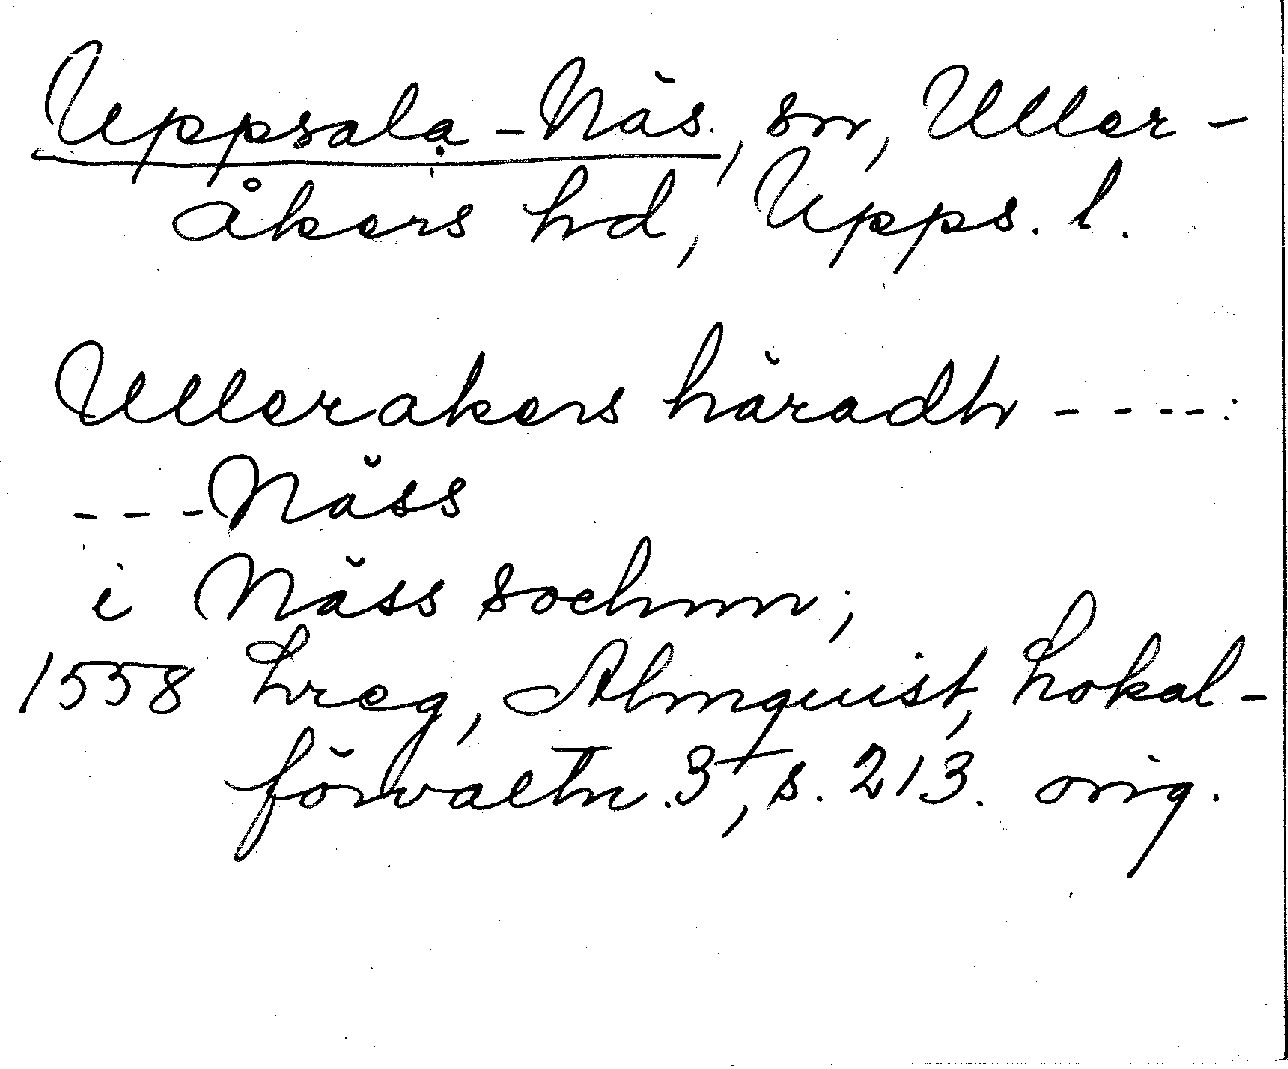 Uppsala-Näs, sn, Uller-
åkers hd, Upps. l.
Ullerakers häradh ----:
---Näss
i Näss sochnn;
1558 Lreg, Almquist, Lokal-
förvaltn. 3, s. 213. orig.